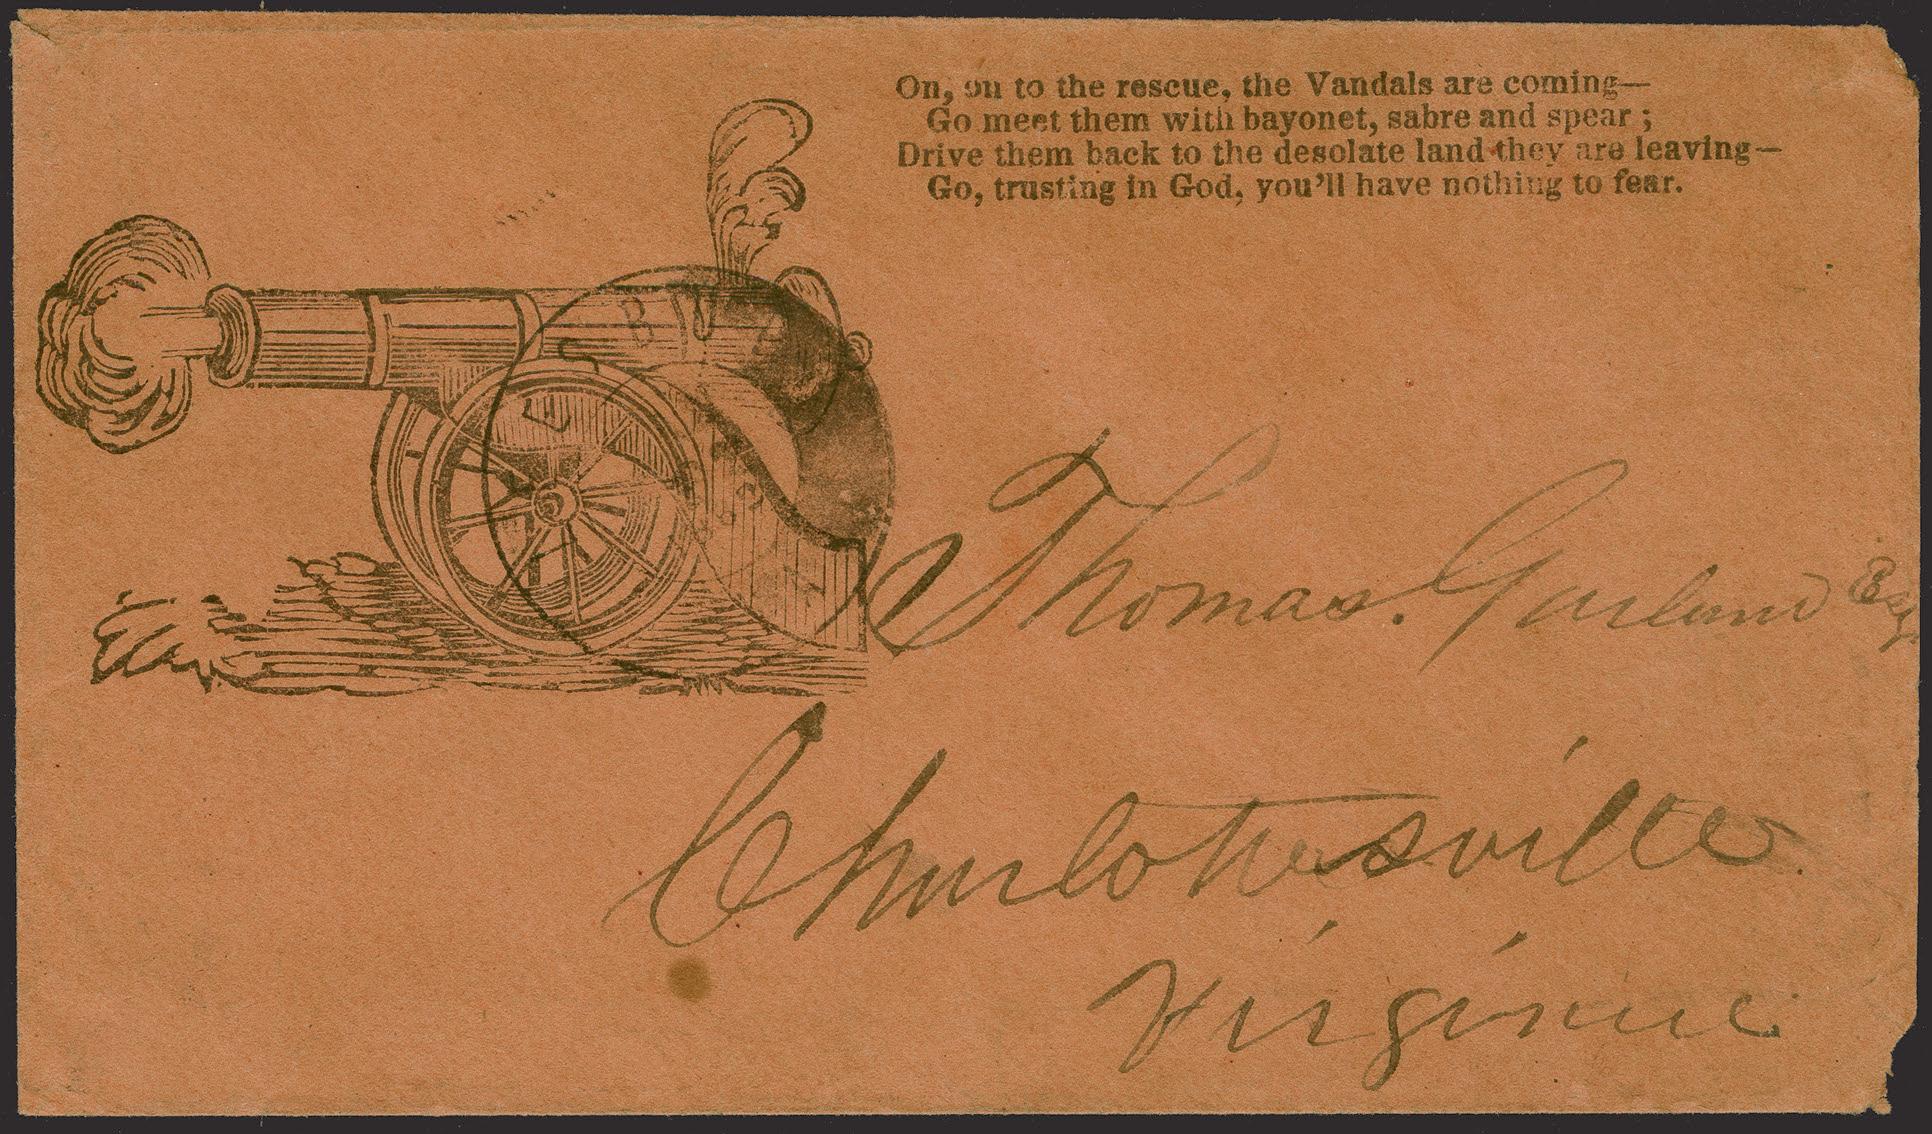 On, on to the rescue, the Vandals are coming—
Go meet them with bayonet, sabre and spear ;
Drive them back to the desolate land they are leaving—
Go, trusting in God, you'll have nothing to fear.
Thomas. Garland Esq
Charlottesville.
Virginia